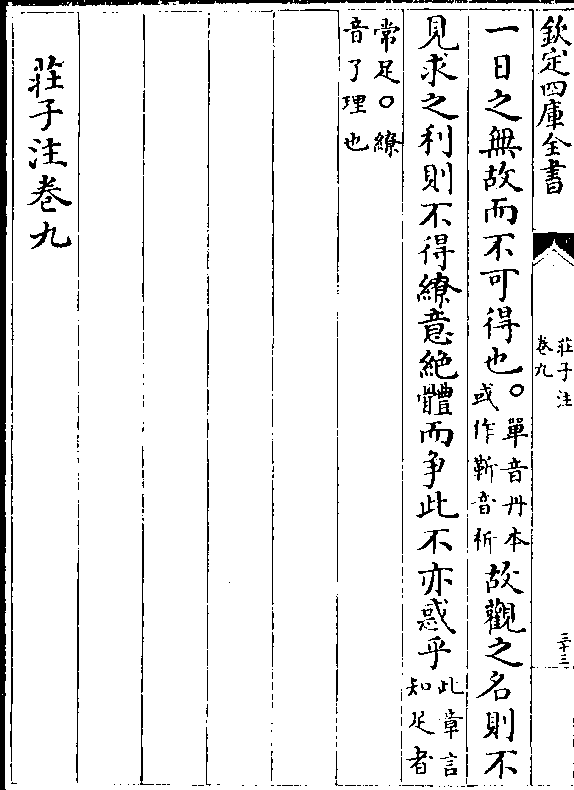 欽定四庫全書
莊子注
卷九
三十三
一日之無故而不可得也○單音丹本或作靳音祈故觀之名則不
見求之利則不得繚意絶體而爭此不亦惑乎此章言知足者
常足○繚音了理也
莊子注卷九